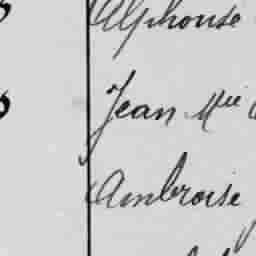 Alphonse
Jean Mie
Ambroise